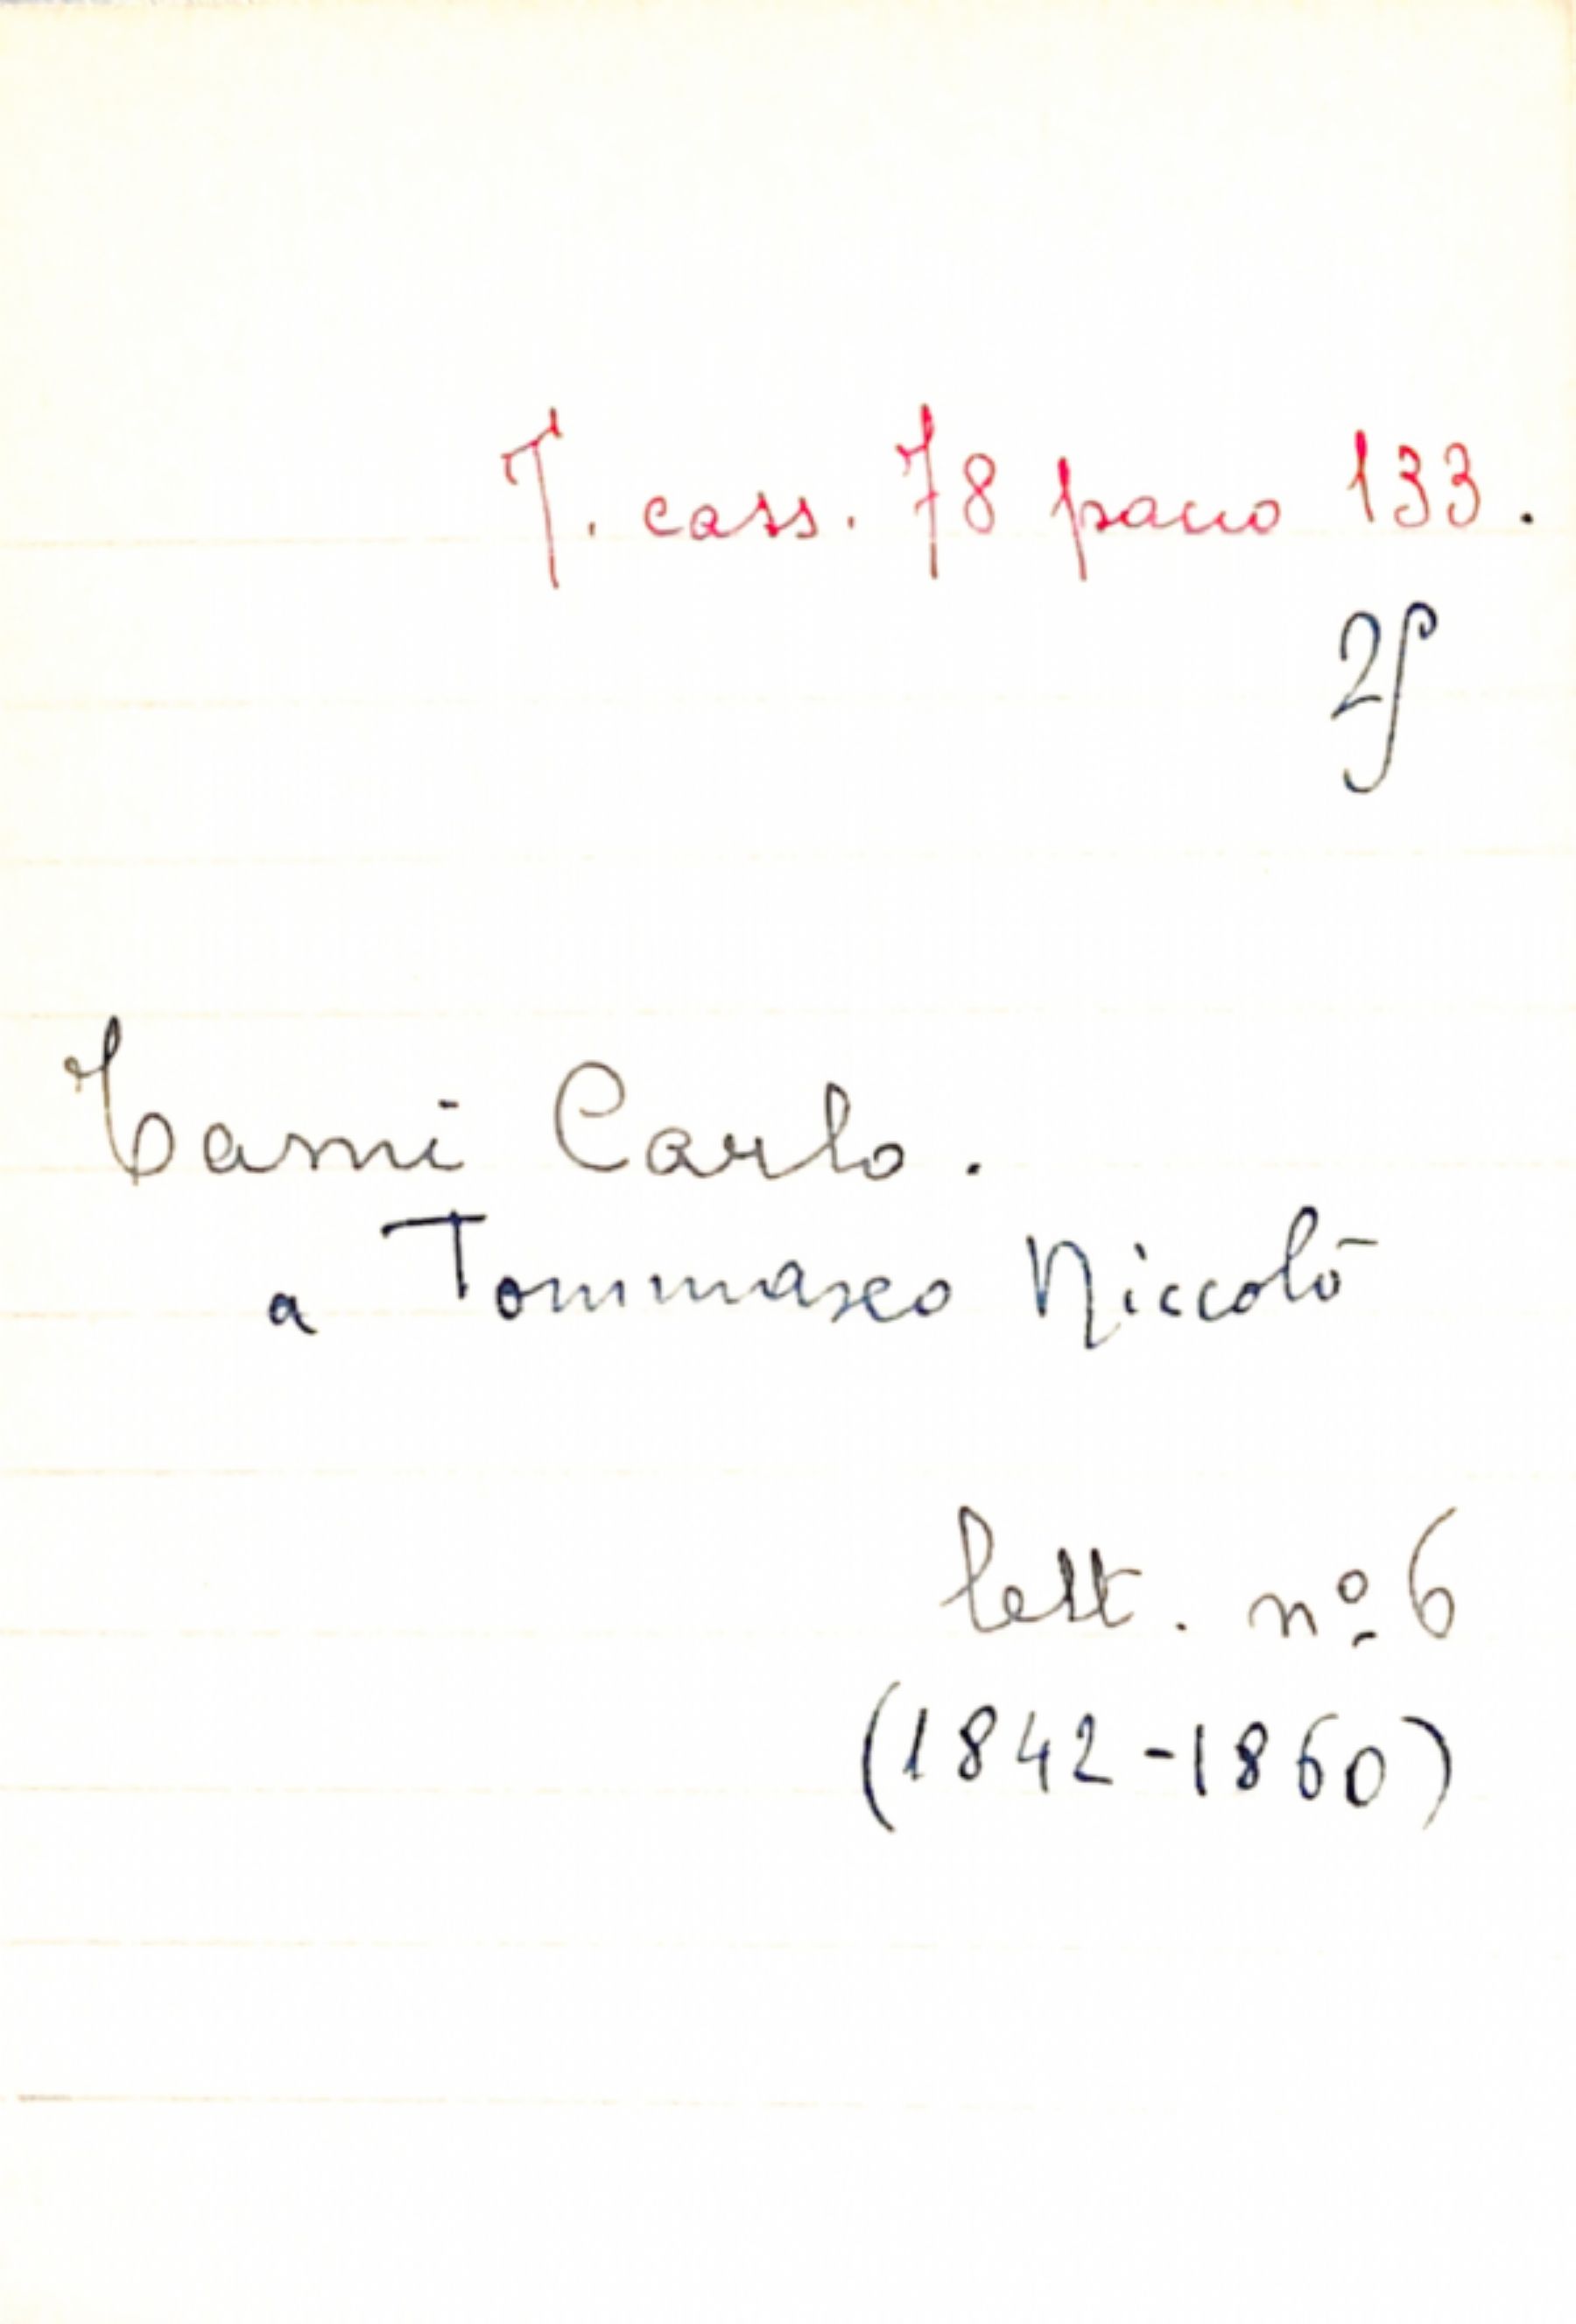 T. cass. 78 pacco 133.
Carlo.
a Tommaseo Niccolò
lett. nº 6
(1842-1860)